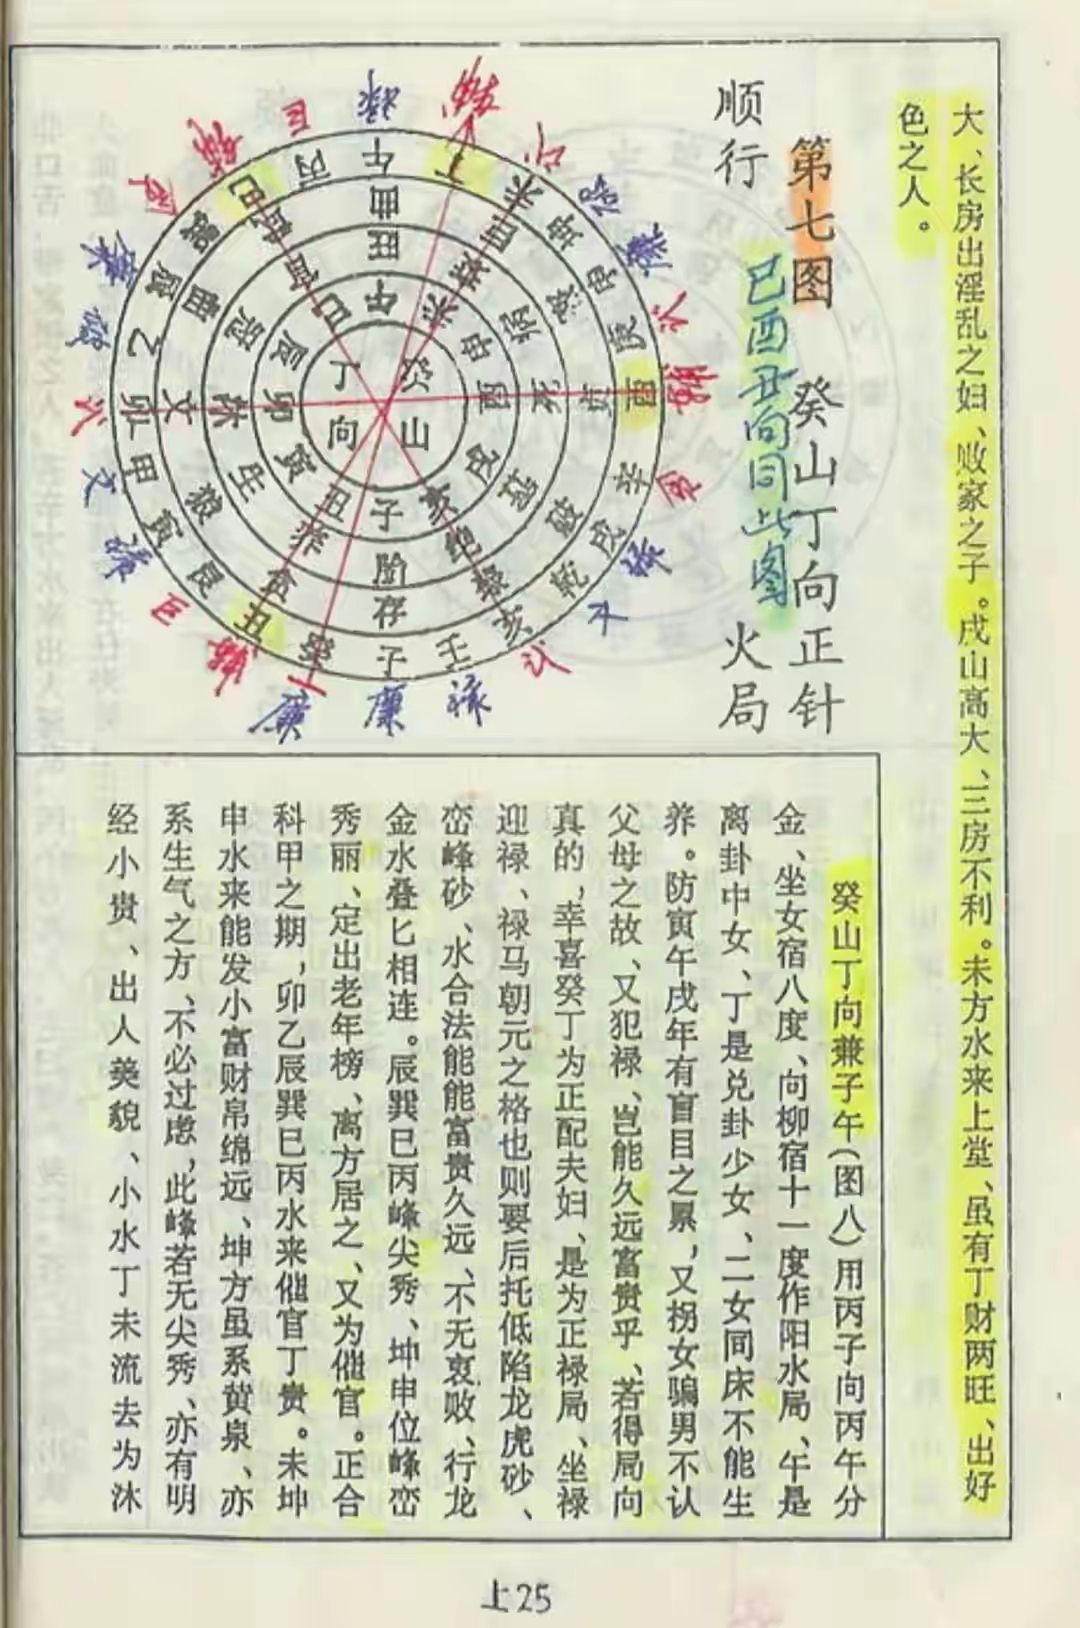 大、长房出淫乱之妇、败家之子。戌山高大、三房不利。未方水来上堂、虽有丁财两旺、出好
色之人。
第七图 癸山丁向正针
顺行 火局
巳酉丑向同此图
丁向
癸山
午 未 申 酉 戌 亥 子 丑 寅 卯 辰 巳
旺 衰 病 死 墓 绝 胎 养 生 沐 冠 官
午 丁 未 坤 申 庚 酉 辛 戌 乾 亥 壬 子 癸 丑 艮 寅 甲 卯 乙 辰 巽 巳 丙
癸山丁向兼子午(图八)用丙子向丙午分
金、坐女宿八度、向柳宿十一度作阳水局、午是
离卦中女、丁是兑卦少女、二女间床不能生
养。防寅午戌年有盲目之累,又拐女骗男不认
父母之故、又犯禄、岂能久远富贵乎、若得局向
真的,幸喜癸丁为正配夫妇、是为正禄局、坐禄
迎禄、禄马朝元之格也则要后托低陷龙虎砂、
峦峰砂、水合法能能富贵久远、不无衰败、行龙
金水叠匕相连。辰巽巳丙峰尖秀、坤申位峰峦
秀丽、定出老年榜、离方居之、又为催官。正合
科甲之期,卯乙辰巽巳丙水来催官丁贵。未坤
申水来能发小富财帛绵远、坤方虽系黄泉、亦
系生气之方、不必过虑,此峰若无尖秀、亦有明
经小贵、出人美貌、小水丁未流去为沐
上25